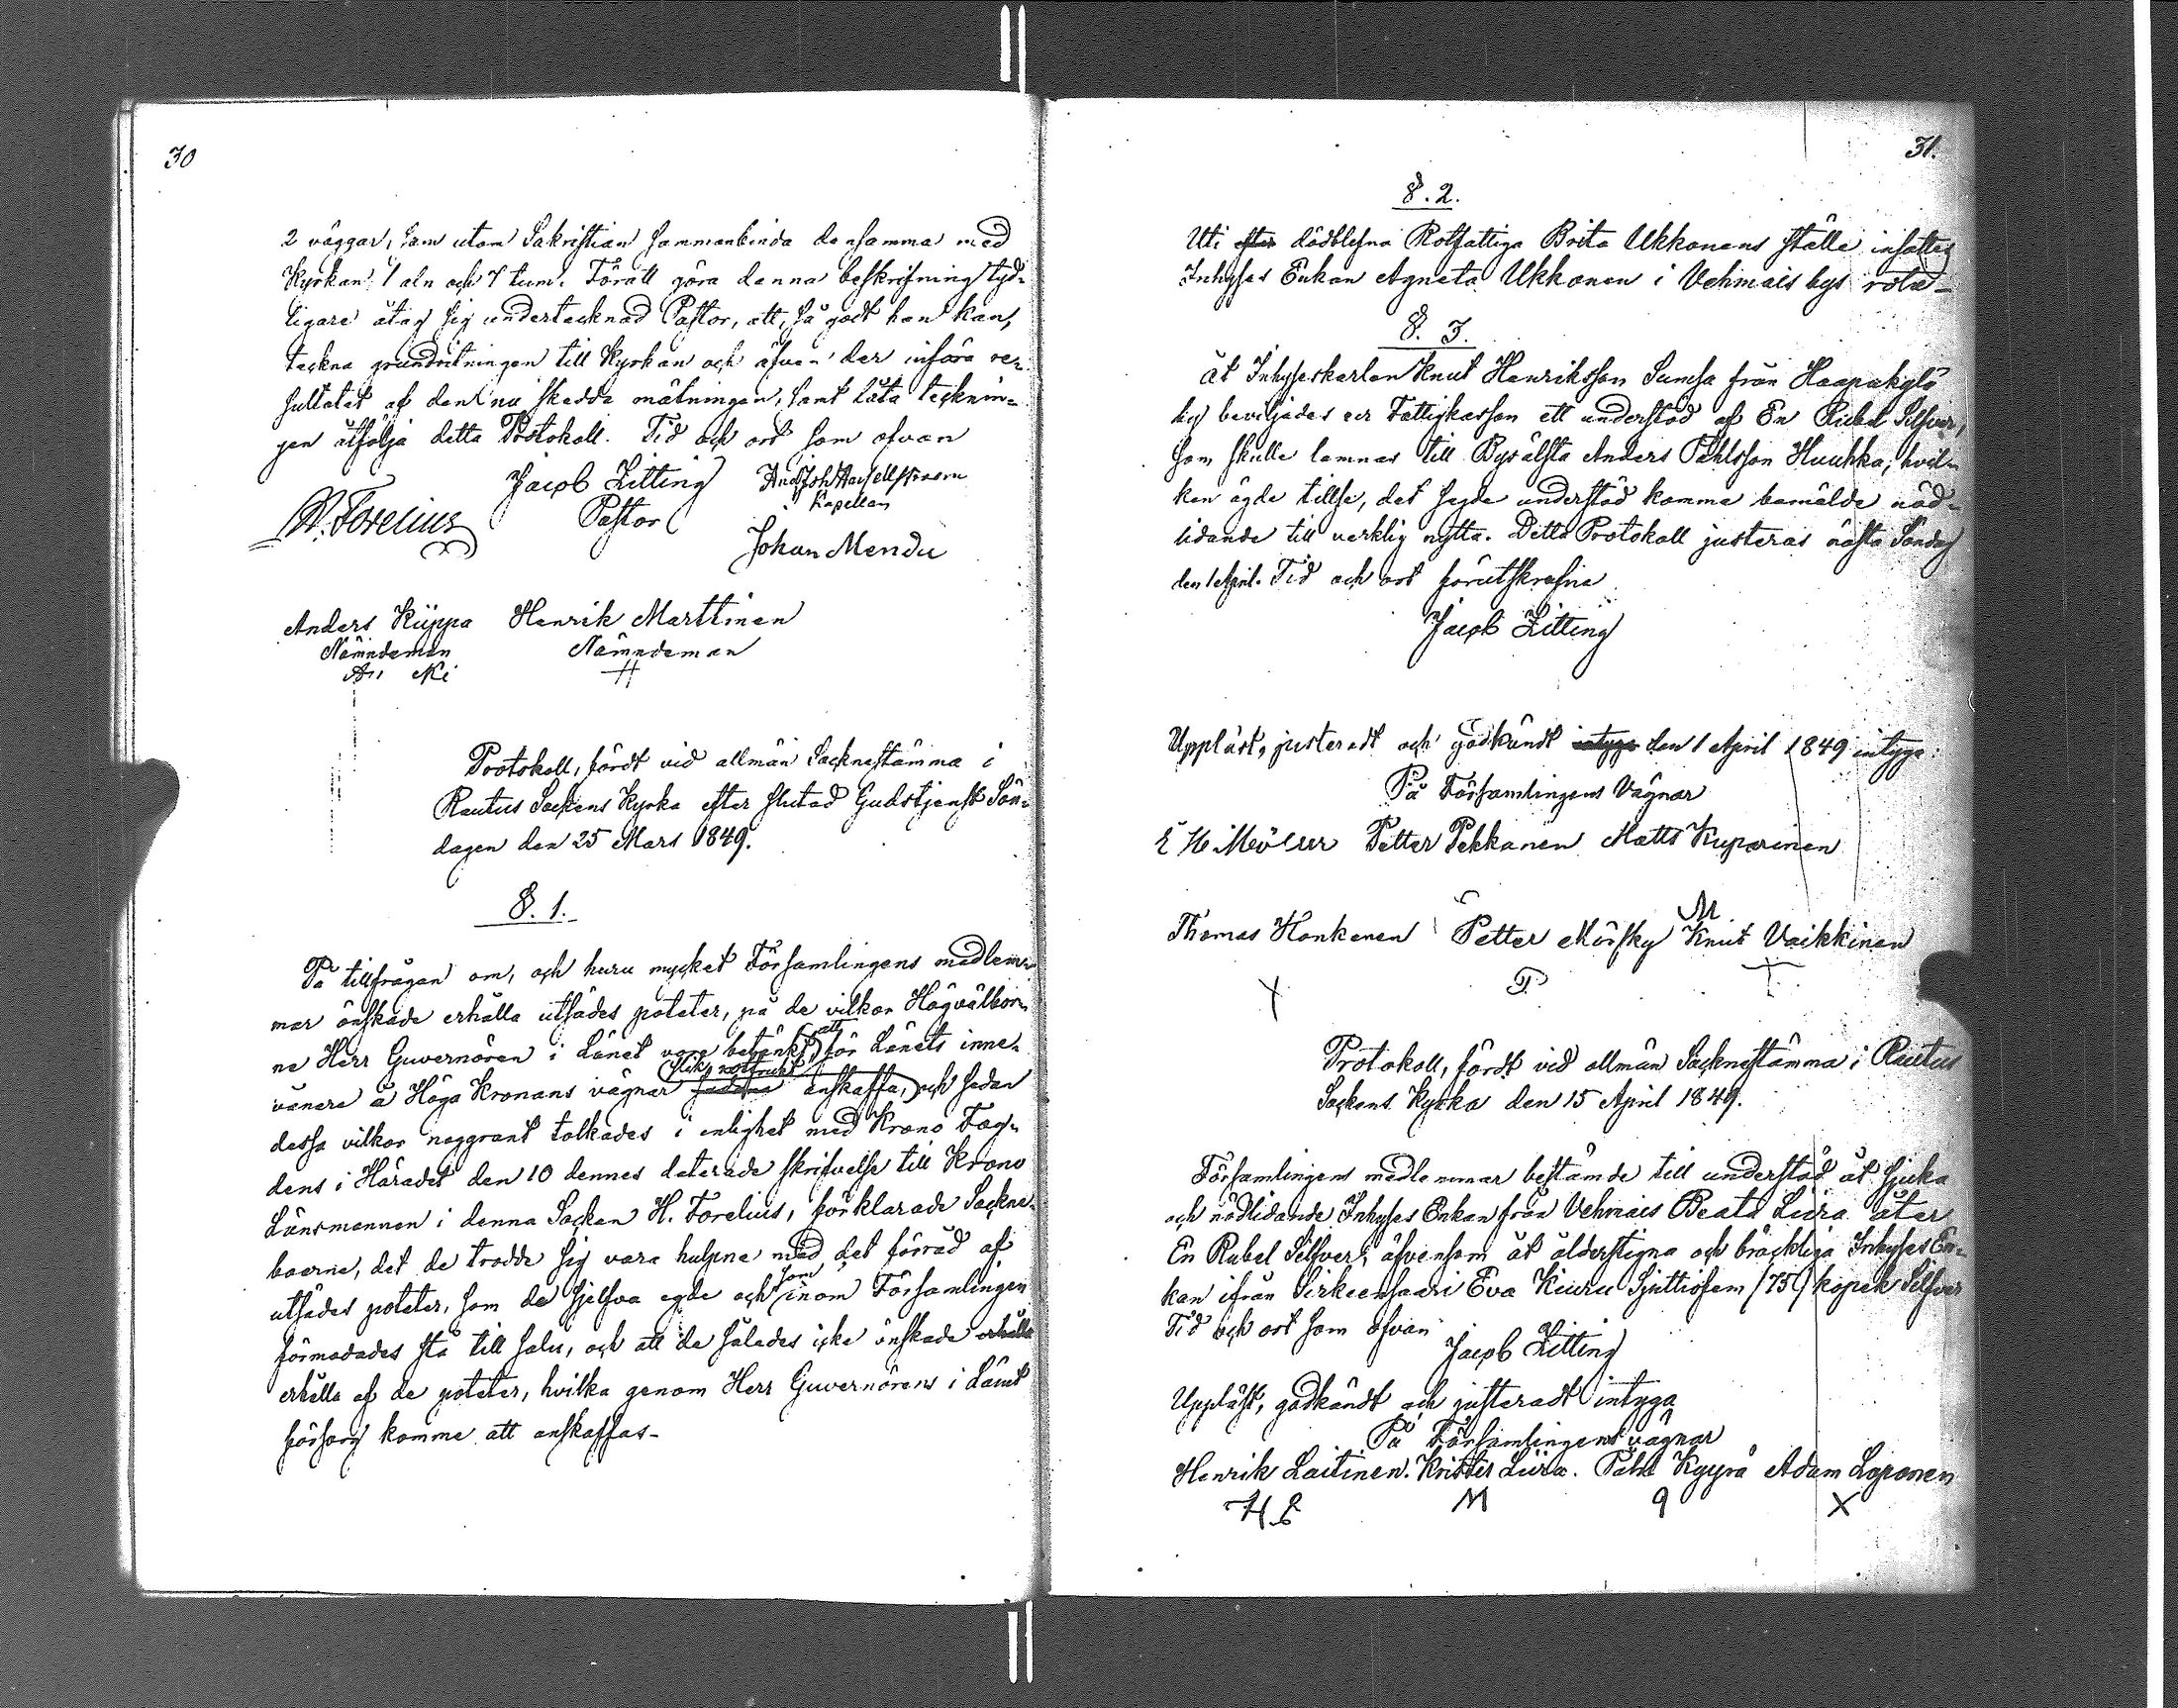 30
2 väggar, som utom Sakristian sammanbinda densamma med
Kyrkan 1 aln och 7 tum. Föratt göra denna beskrifning tyd-
ligare åtag sig undertecknad Pastor, att, så godt han kan,
teckna grundritningen till Kyrkan och äfven der införa re-
sultatet af den nu skedda mätningen, samt låta tecknin-
gen åtfölja detta Protokoll. Tid och ort som ofvan
Jacob Zitting And Joh
Pastor Kapellan
H. Forelius
Johan Mendu
Anders Kiippa Henrik Marttinen
Nämndeman Nämndeman
Protokoll, fördt vid allmän Socknestämma i
Rautus Sockens Kyrka efter slutad Gudstjenst Sön-
dagen den 25 Mars 1849.
§. 1.
På tillfrågan om, och huru mycket Församlingens medlem-
mar önskade erhålla utsädes poteter, på de vilkor Högvälbor-
ne Herr Guvernören i Länet vore betänkt att för Länets inne-
vånare å Höga Kronans vägnar slik rotfrukt anskaffa, och sedan
dessa vilkor noggrant tolkades i enlighet med Krono Fog-
dens i Häradet den 10 dennes daterade skrifvelse till Krono
Länsmannen i denna Socken H. Forelius, förklarade Sockne-
boerne, det de trodde sig vara hulpne med det förråd af
utsädes poteter, som de sjelfva egde och som inom Församlingen
förmodades stå till salu, och att de således icke önskade erhålla
erhålla af de poteter, hvilka genom Herr Guvernörens i Länet
försorg komme att anskaffas-
31.
§. 2.
Uti efter dödblefna Rotfattiga Brita Ukkonens ställe insattes
Inhyses Enkan Agneta Ukkonen i Vehmais bys rote-
§. 3.
Åt Inhyseskarlen Knut Henriksson Sumsa från Haapakylä
by beviljades ur Fattigkassan ett understöd af En Rubel Silfver,
som skulle lemnas till Byålsta Anders Påhlsson Huuhka, hvil-
ken ägde tillse, det sagde understöd komme bemälde nöd-
lidande till verklig nytta. Detta Protokoll justeras nästa Söndag
den 1 April. Tid och ort förutskrefna
Jacob Zitting
Uppläst, justeradt och godkändt intyga den 1 April 1849 intyga:
På Församlingens Vägnar
Petter Pekkanen Matts Kuparinen
M
Thomas Honkanen Petter Mörsky Knut Vaikkinen
P
Protokoll, fördt vid allmän Socknestämma i Rautus
Sockens Kyrka den 15 April 1849.
Församlingens medlemmar bestämde till understöd åt sjuka
och nödlidande Inhyses Enkan från Vehmais Beata Liira åter
En Rubel Silfver, äfvensom åt ålderstigna och bräckliga Inhyses En-
kan ifrån Sirkeensaari Eva Kiuru Sjuttiofem /75/ kopek Silfver
Tid och ort som ofvan
Jacob Zitting
Uppläst, godkändt och justeradt intyga
På Församlingens vägnar
Henrik Laitinen. Krister Liira. Påhl Kyyrä Adam Loponen
H L M 9 X